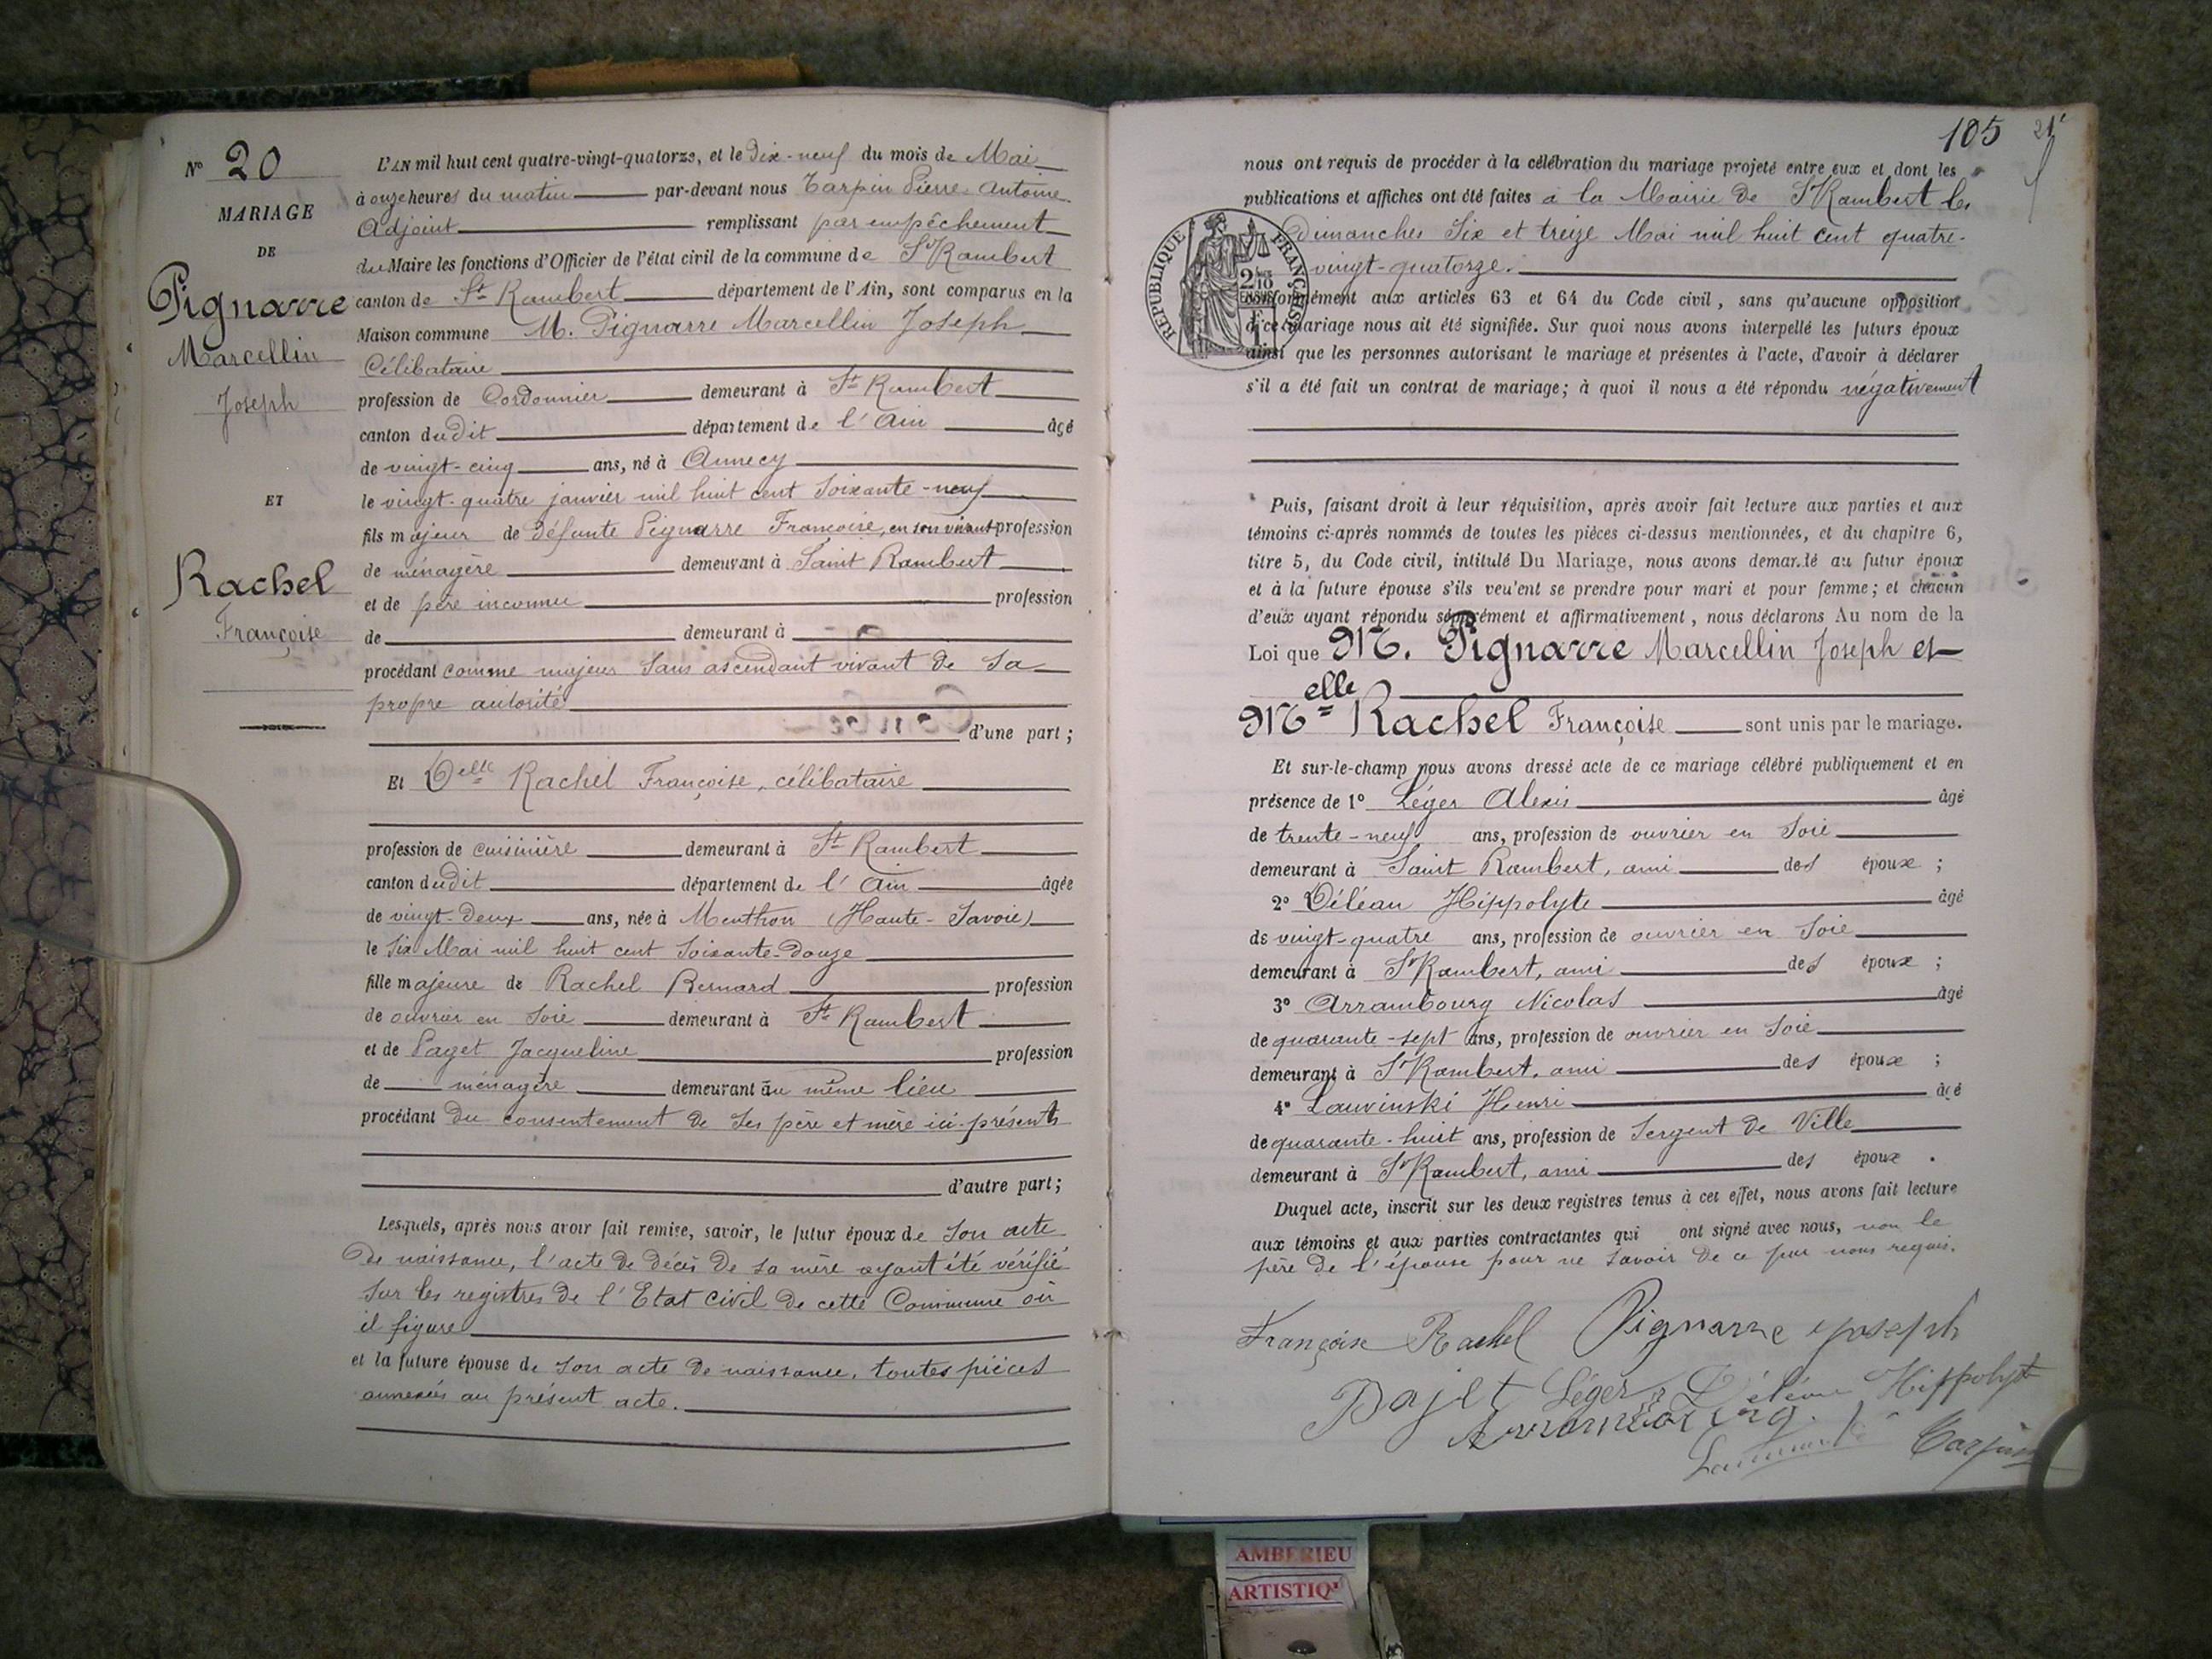 N° 20
MARIAGE
DE
Pignarre
Marcellin
Joseph
ET
Rachel
Françoise
L'AN mil huit cent quatre-vingt-quatorze, et le Dix-neuf du mois de Mai
à onze heures du matin par-devant nous Tarpin Pierre-Antoine
Adjoint remplissant par empêchement
du Maire les fonctions d'Officier de l'état civil de la commune de St Rambert
canton de St Rambert département de l'Ain, sont comparus en la
Maison commune M. Pignarre Marcellin Joseph
Célibataire
profession de Cordonnier demeurant à St Rambert
canton dudit département de l'Ain âgé
de vingt-cinq ans, né à Annecy
le vingt-quatre janvier mil huit cent soixante-neuf
fils majeur de défunte Pignarre Françoise, en son vivant profession
de ménagère demeurant à Saint Rambert
et de père inconnu profession
de demeurant à
procédant comme majeur sans ascendant vivant de sa
propre autorité
d'une part ;
Et Delle Rachel Françoise, célibataire
profession de cuisinière demeurant à St Rambert
canton dudit département de l'Ain âgée
de vingt-deux ans, née à Menthon (Haute-Savoie)
le six Mai mil huit cent soixante-douze
fille majeure de Rachel Bernard profession
de ouvrier en soie demeurant à St Rambert
et de Paget Jacqueline profession
de ménagère demeurant au même lieu
procédant du consentement de ses père et mère ici-présents
d'autre part ;
Lesquels, après nous avoir fait remise, savoir, le futur époux de son acte
de naissance, l'acte de décès de sa mère ayant été vérifié
sur les registres de l'Etat civil de cette Commune où
il figure
et la future épouse de son acte de naissance, toutes pièces
annexées au présent acte.
105
nous ont requis de procéder à la célébration du mariage projeté entre eux et dont les
publications et affiches ont été faites à la Mairie de St Rambert les
dimanches six et treize Mai mil huit cent quatre-
vingt-quatorze.
RÉPUBLIQUE FRANÇAISE
conformément aux articles 63 et 64 du Code civil, sans qu'aucune opposition
à ce mariage nous ait été signifiée. Sur quoi nous avons interpellé les futurs époux
ainsi que les personnes autorisant le mariage et présentes à l'acte, d'avoir à déclarer
s'il a été fait un contrat de mariage ; à quoi il nous a été répondu négativement
Puis, faisant droit à leur réquisition, après avoir fait lecture aux parties et aux
témoins ci-après nommés de toutes les pièces ci-dessus mentionnées, et du chapitre 6,
titre 5, du Code civil, intitulé Du Mariage, nous avons demandé au futur époux
et à la future épouse s'ils veulent se prendre pour mari et pour femme ; et chacun
d'eux ayant répondu séparément et affirmativement, nous déclarons Au nom de la
Loi que M. Pignarre Marcellin Joseph et
Melle Rachel Françoise sont unis par le mariage.
Et sur-le-champ nous avons dressé acte de ce mariage célébré publiquement et en
présence de 1° Léger Alexis âgé
de trente-neuf ans, profession de ouvrier en soie
demeurant à Saint Rambert, ami des époux ;
2° Déléan Hippolyte âgé
de vingt-quatre ans, profession de ouvrier en soie
demeurant à St Rambert, ami des époux ;
3° Arrambourg Nicolas âgé
de quarante-sept ans, profession de ouvrier en soie
demeurant à St Rambert, ami des époux ;
4° Lauvinski Henri âgé
de quarante-huit ans, profession de Sergent de Ville
demeurant à St Rambert, ami des époux .
Duquel acte, inscrit sur les deux registres tenus à cet effet, nous avons fait lecture
aux témoins et aux parties contractantes qui ont signé avec nous, non le
père de l'épouse pour ne savoir de ce par nous requis.
Françoise Rachel Pignarre Joseph
Pajet Léger Déléan Hippolyte
Arrambourg
Tarpin
AMBERIEU
ARTISTIQ